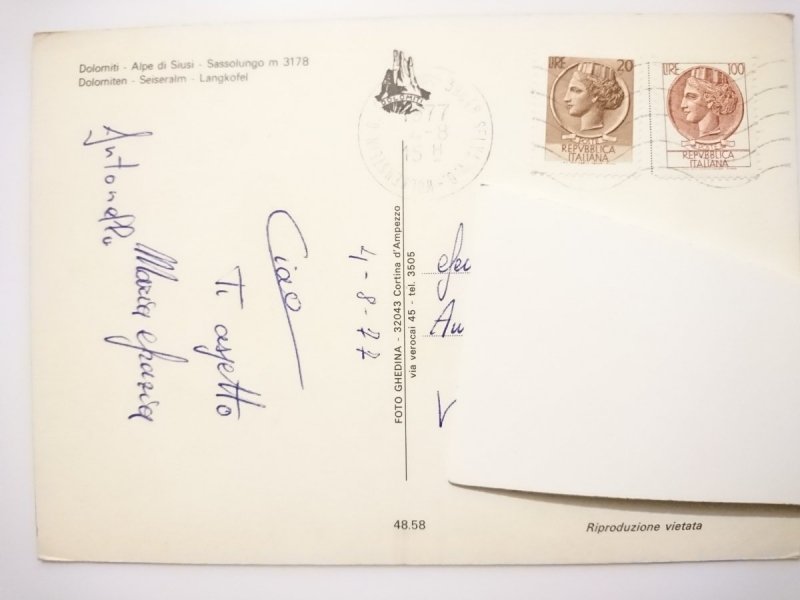 Dolomiti - Alpe di Siusi - Sassolungo m 3178
Dolomiten - Seiseralm - Langkofel
DOLOMITI
LIRE 20
POSTE
REPVBBLICA
ITALIANA
LIRE 100
POSTE
REPVBBLICA
ITALIANA
Ciao
Ti aspetto
Maria Grazia
Antonella
4-8-77
FOTO GHEDINA - 32043 Cortina d'Ampezzo
via verocai 45 - tel. 3505
V
48.58
Riproduzione vietata